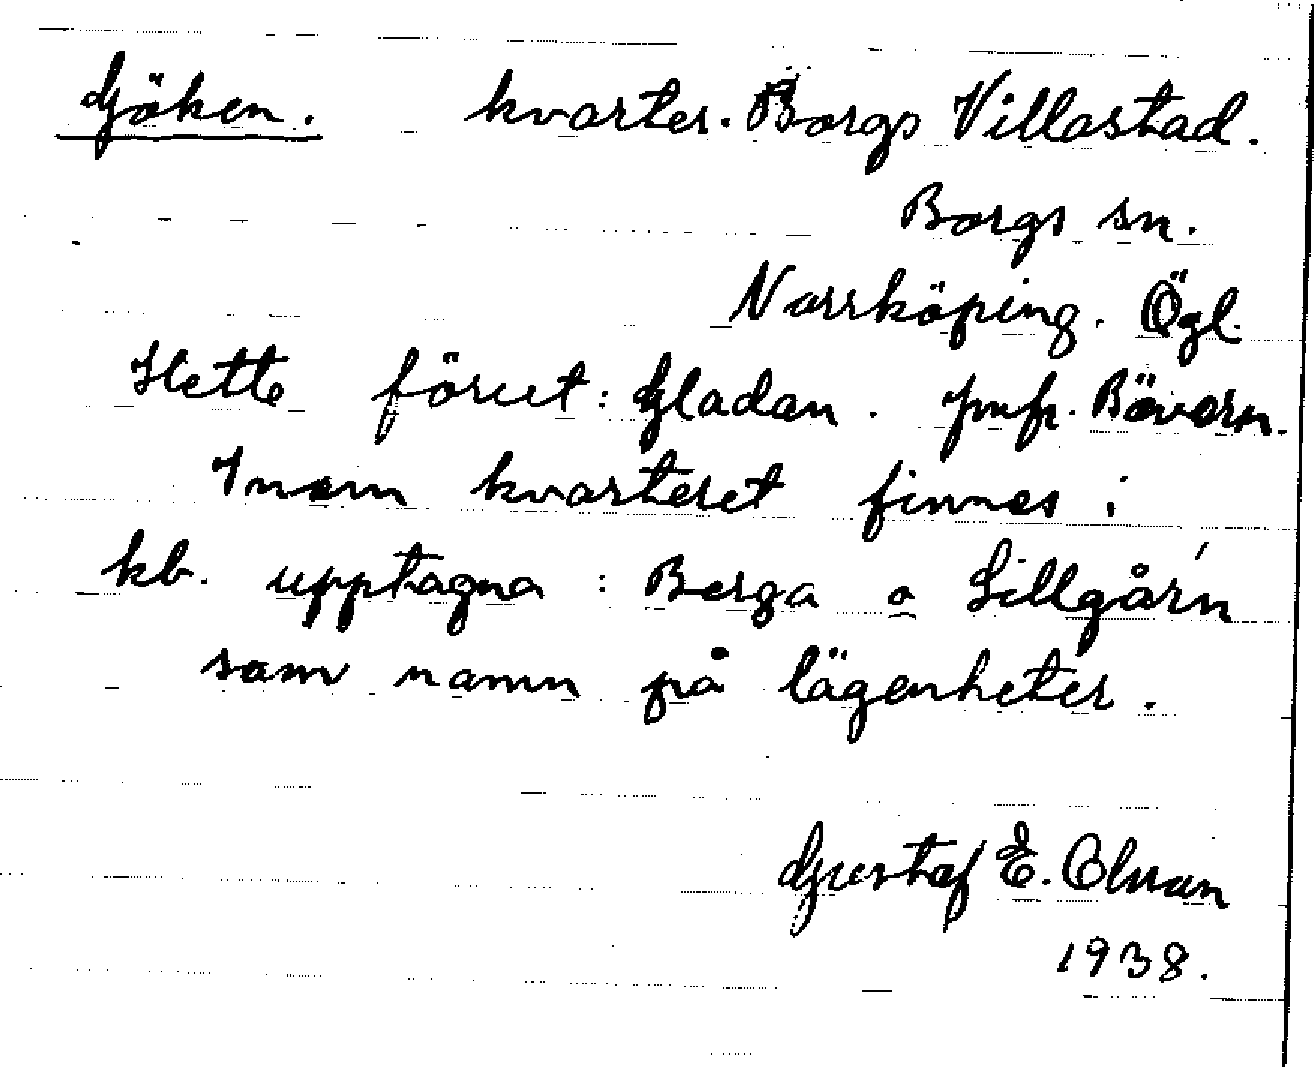 Göken. kvarter. Borgs Villastad.
Borgs sn.
Norrköping. Ögl.
Hette förut: Gladan. jmfr. Bävern.
Inom kvarteret finnes i
kb. upptagna: Berga o Lillgår'n
som namn på lägenheter.
Gustaf E. Olson
1938.